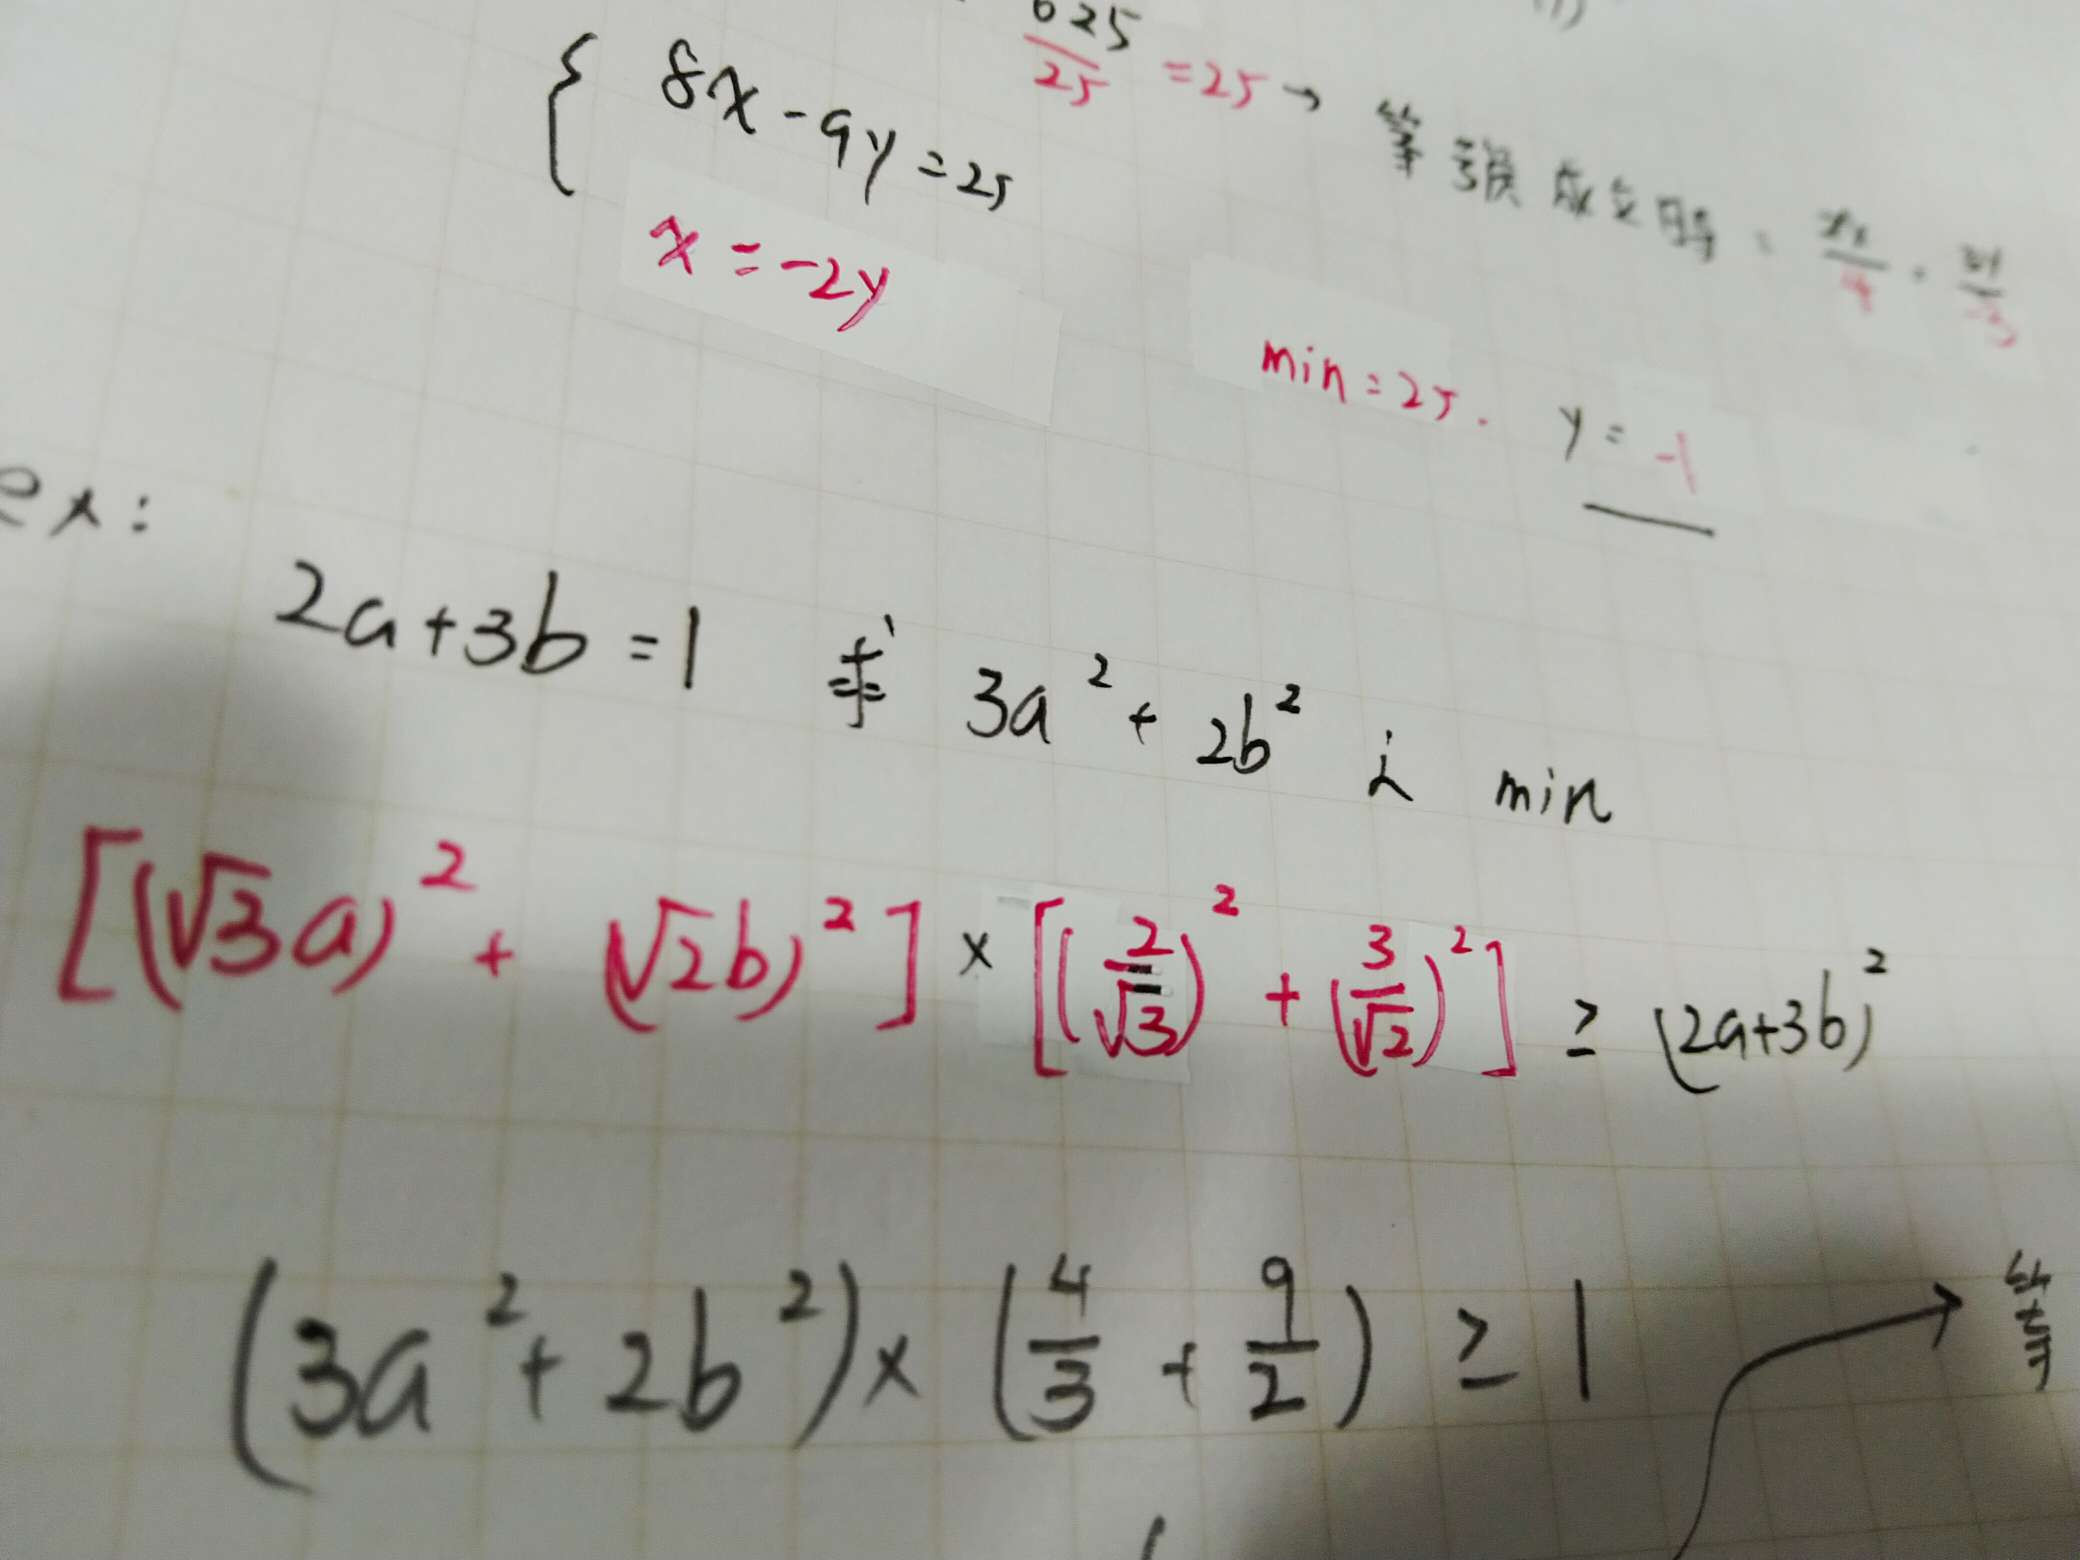 625/25 = 25 → 等號成立時
{ 8x - 9y = 25
x = -2y
min = 25. y = -1
ex:
2a+3b = 1 求 3a² + 2b² 之 min
[(√3a)² + (√2b)²] × [(2/√3)² + (3/√2)²] ≥ (2a+3b)²
(3a² + 2b²) × (4/3 + 9/2) ≥ 1 → 等